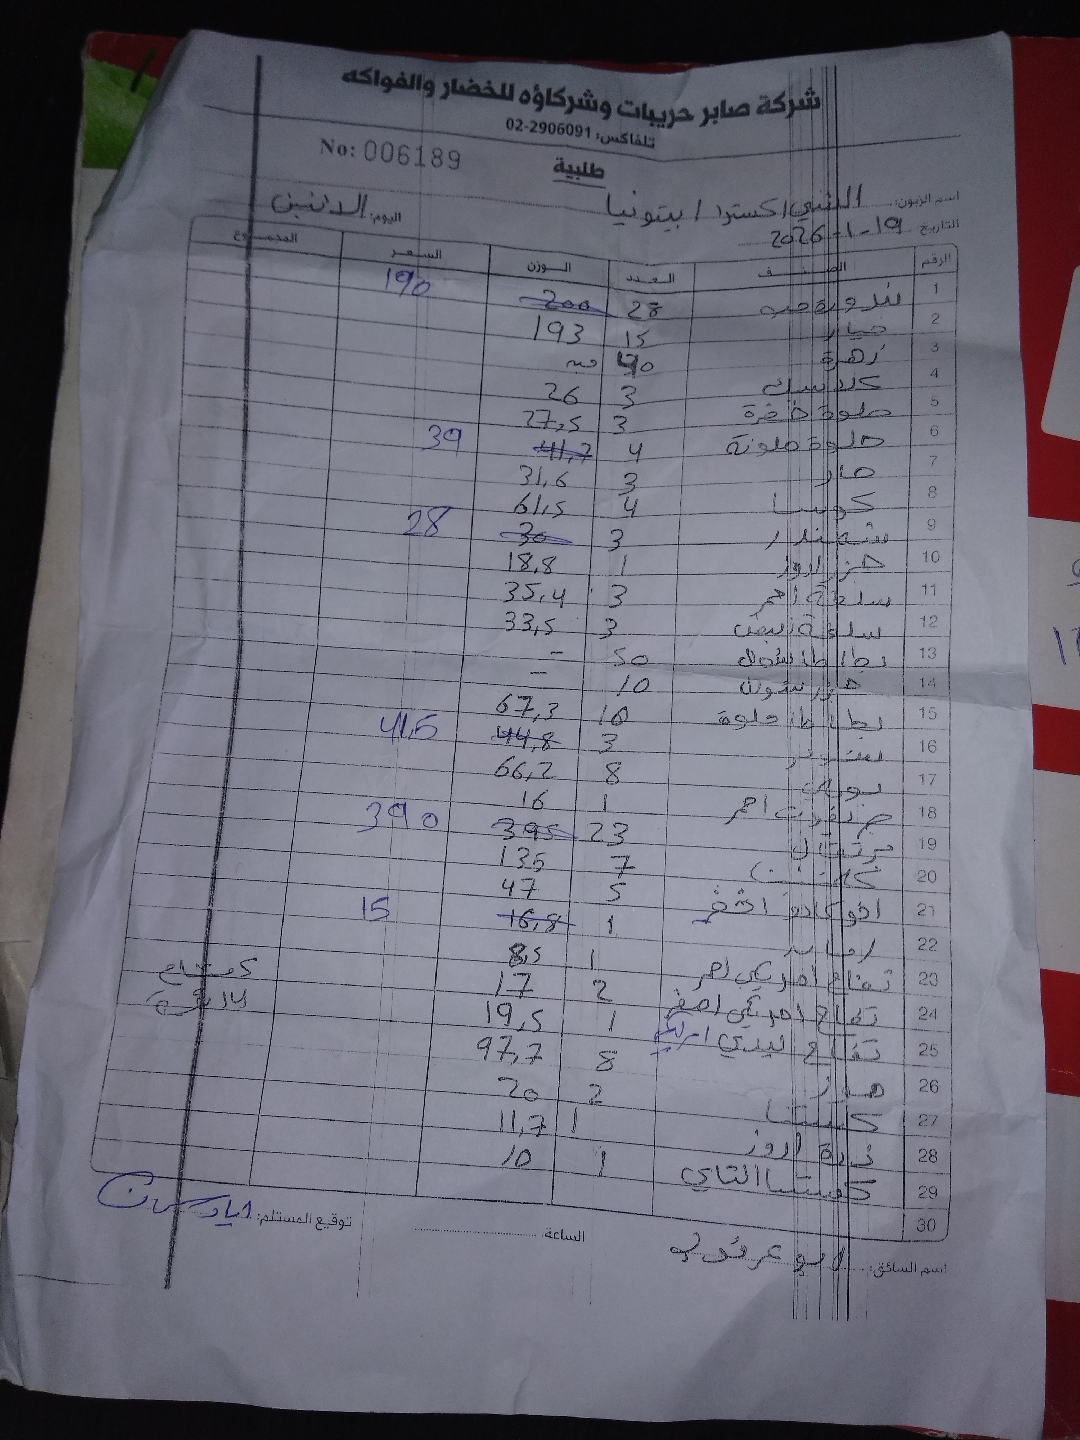 شركة صابر حريبات وشركاؤه للخضار والفواكه
تلفاكس: 02-2906091
No: 006189
طلبية
اسم الزبون: الشني اكسترا / بيتونيا
اليوم: الاثنين
التاريخ 19-1-2026
الرقم الصنف العدد الوزن السعر المجموع
1 بندورة 28 200 190
2 خيار 15 193
3 زهرة 90
4 كلاسيك 3 26
5 حلوة خضرة 3 27,5
6 حلوة ملونة 4 41,7 39
7 حار 3 31,6
8 كوسا 4 61,5
9 شمندر 3 30 28
10 جزر اروز 1 18,8
11 سلعة احمر 3 35,4
12 سلعة ابيض 3 33,5
13 بطاطا شوال 50 -
14 10 -
15 بطاطا حلوة 10 67,3
16 3 44,8 41,5
17 بوملي 8 66,2
18 جريفوت احمر 1 16
19 برتقال 23 395 390
20 7 135
21 افوكادو اشقر 5 47
22 1 16,8 15
23 تفاح امريكي احمر 1 8,5
24 تفاح امريكي اصفر 2 17
25 تفاح ليدي 1 19,5
26 موز 8 97,7
27 كستنا 2 20
28 ذرة اروز 1 11,7
29 كوستا التاي 1 10
30
توقيع المستلم:
الساعة
اسم السائق: ابو عرقوب